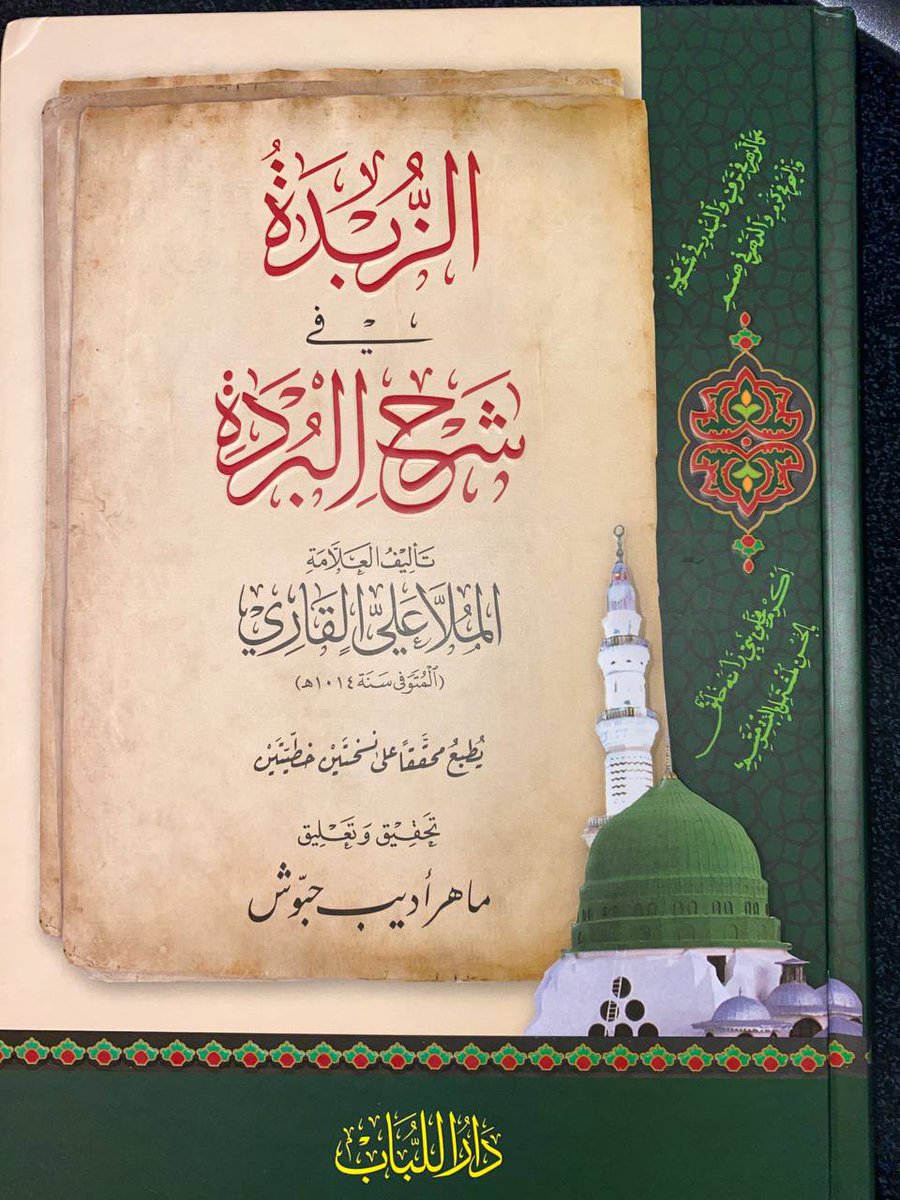 الزُّبْدَةُ
فِي
شَرْحِ البُرْدَةِ
تَأْلِيفُ العَلَّامَةِ
المُلَّا عَلِيٍّ القَارِي
(المُتَوَفَّى سَنَة ١٠١٤هـ)
يُطبعُ محقَّقاً على نسختَيْن خطيّتَيْن
تحقِيق وَتَعْلِيق
ماهر أديب حبّوش
كالزهر في ترف والبدر في شرف
والبحر في كرم والدهر في همم
أكرم بخلق نبي زانه خلق
بالحسن مشتمل بالبشر متسم
دَارُ اللُّبَاب